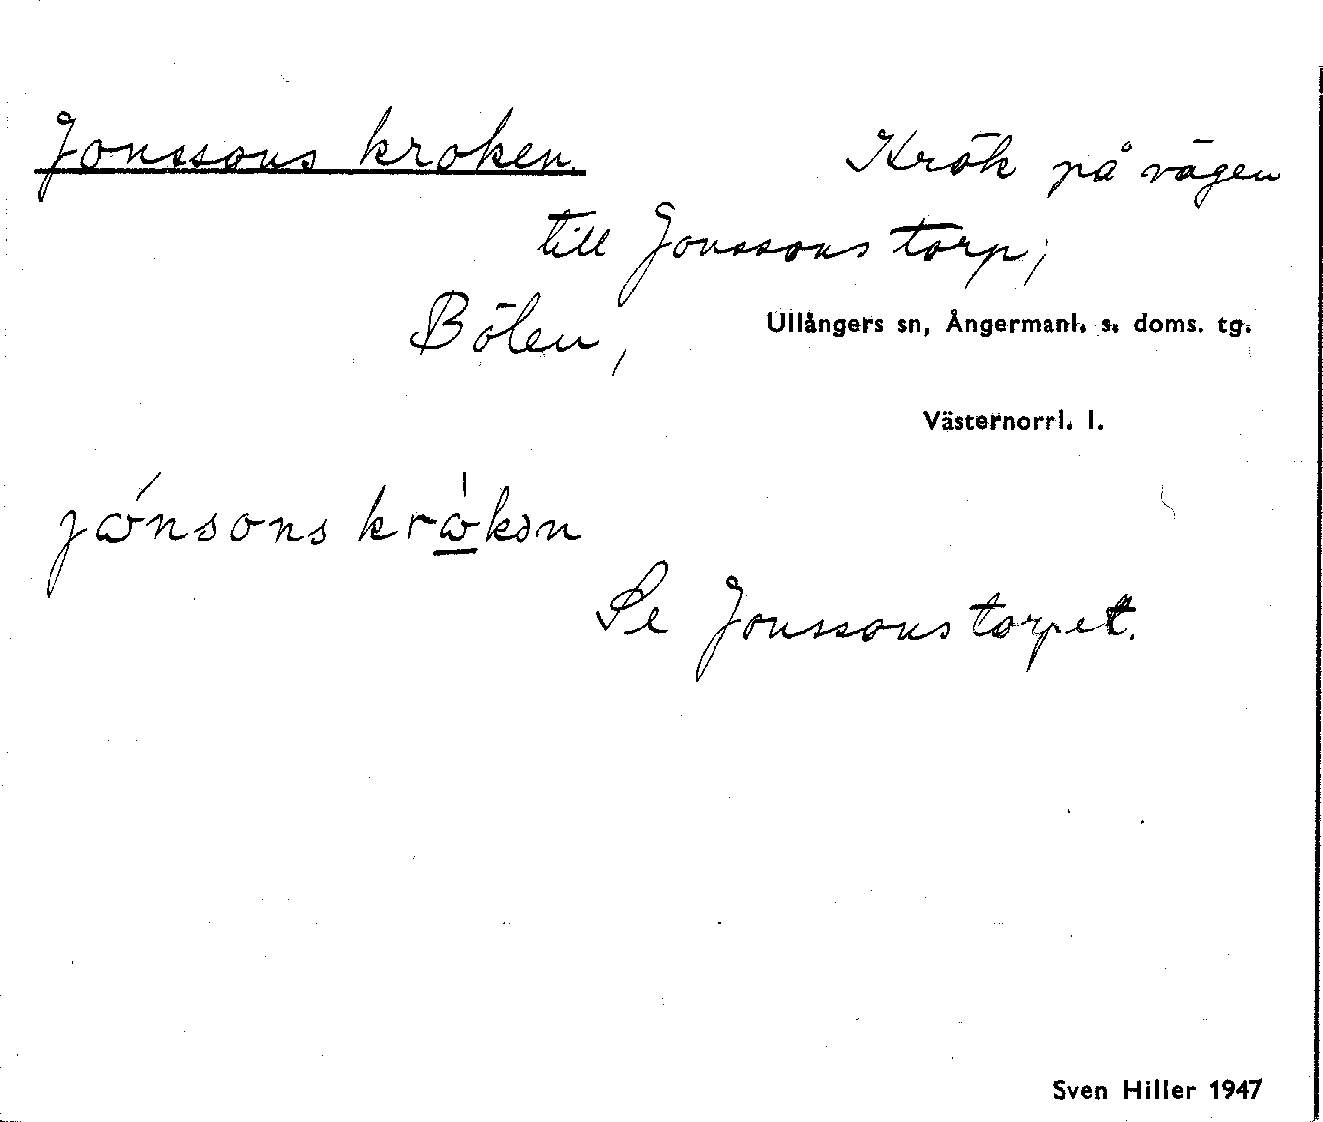 Jonssons kroken. Krök på vägen
till Jonssons torp,
Bölen, Ullångers sn, Ångermanl. s. doms. tg.
Västernorrl. l.
jɷ́nsons krɷ̀kən
Se Jonssonstorpet.
Sven Hiller 1947